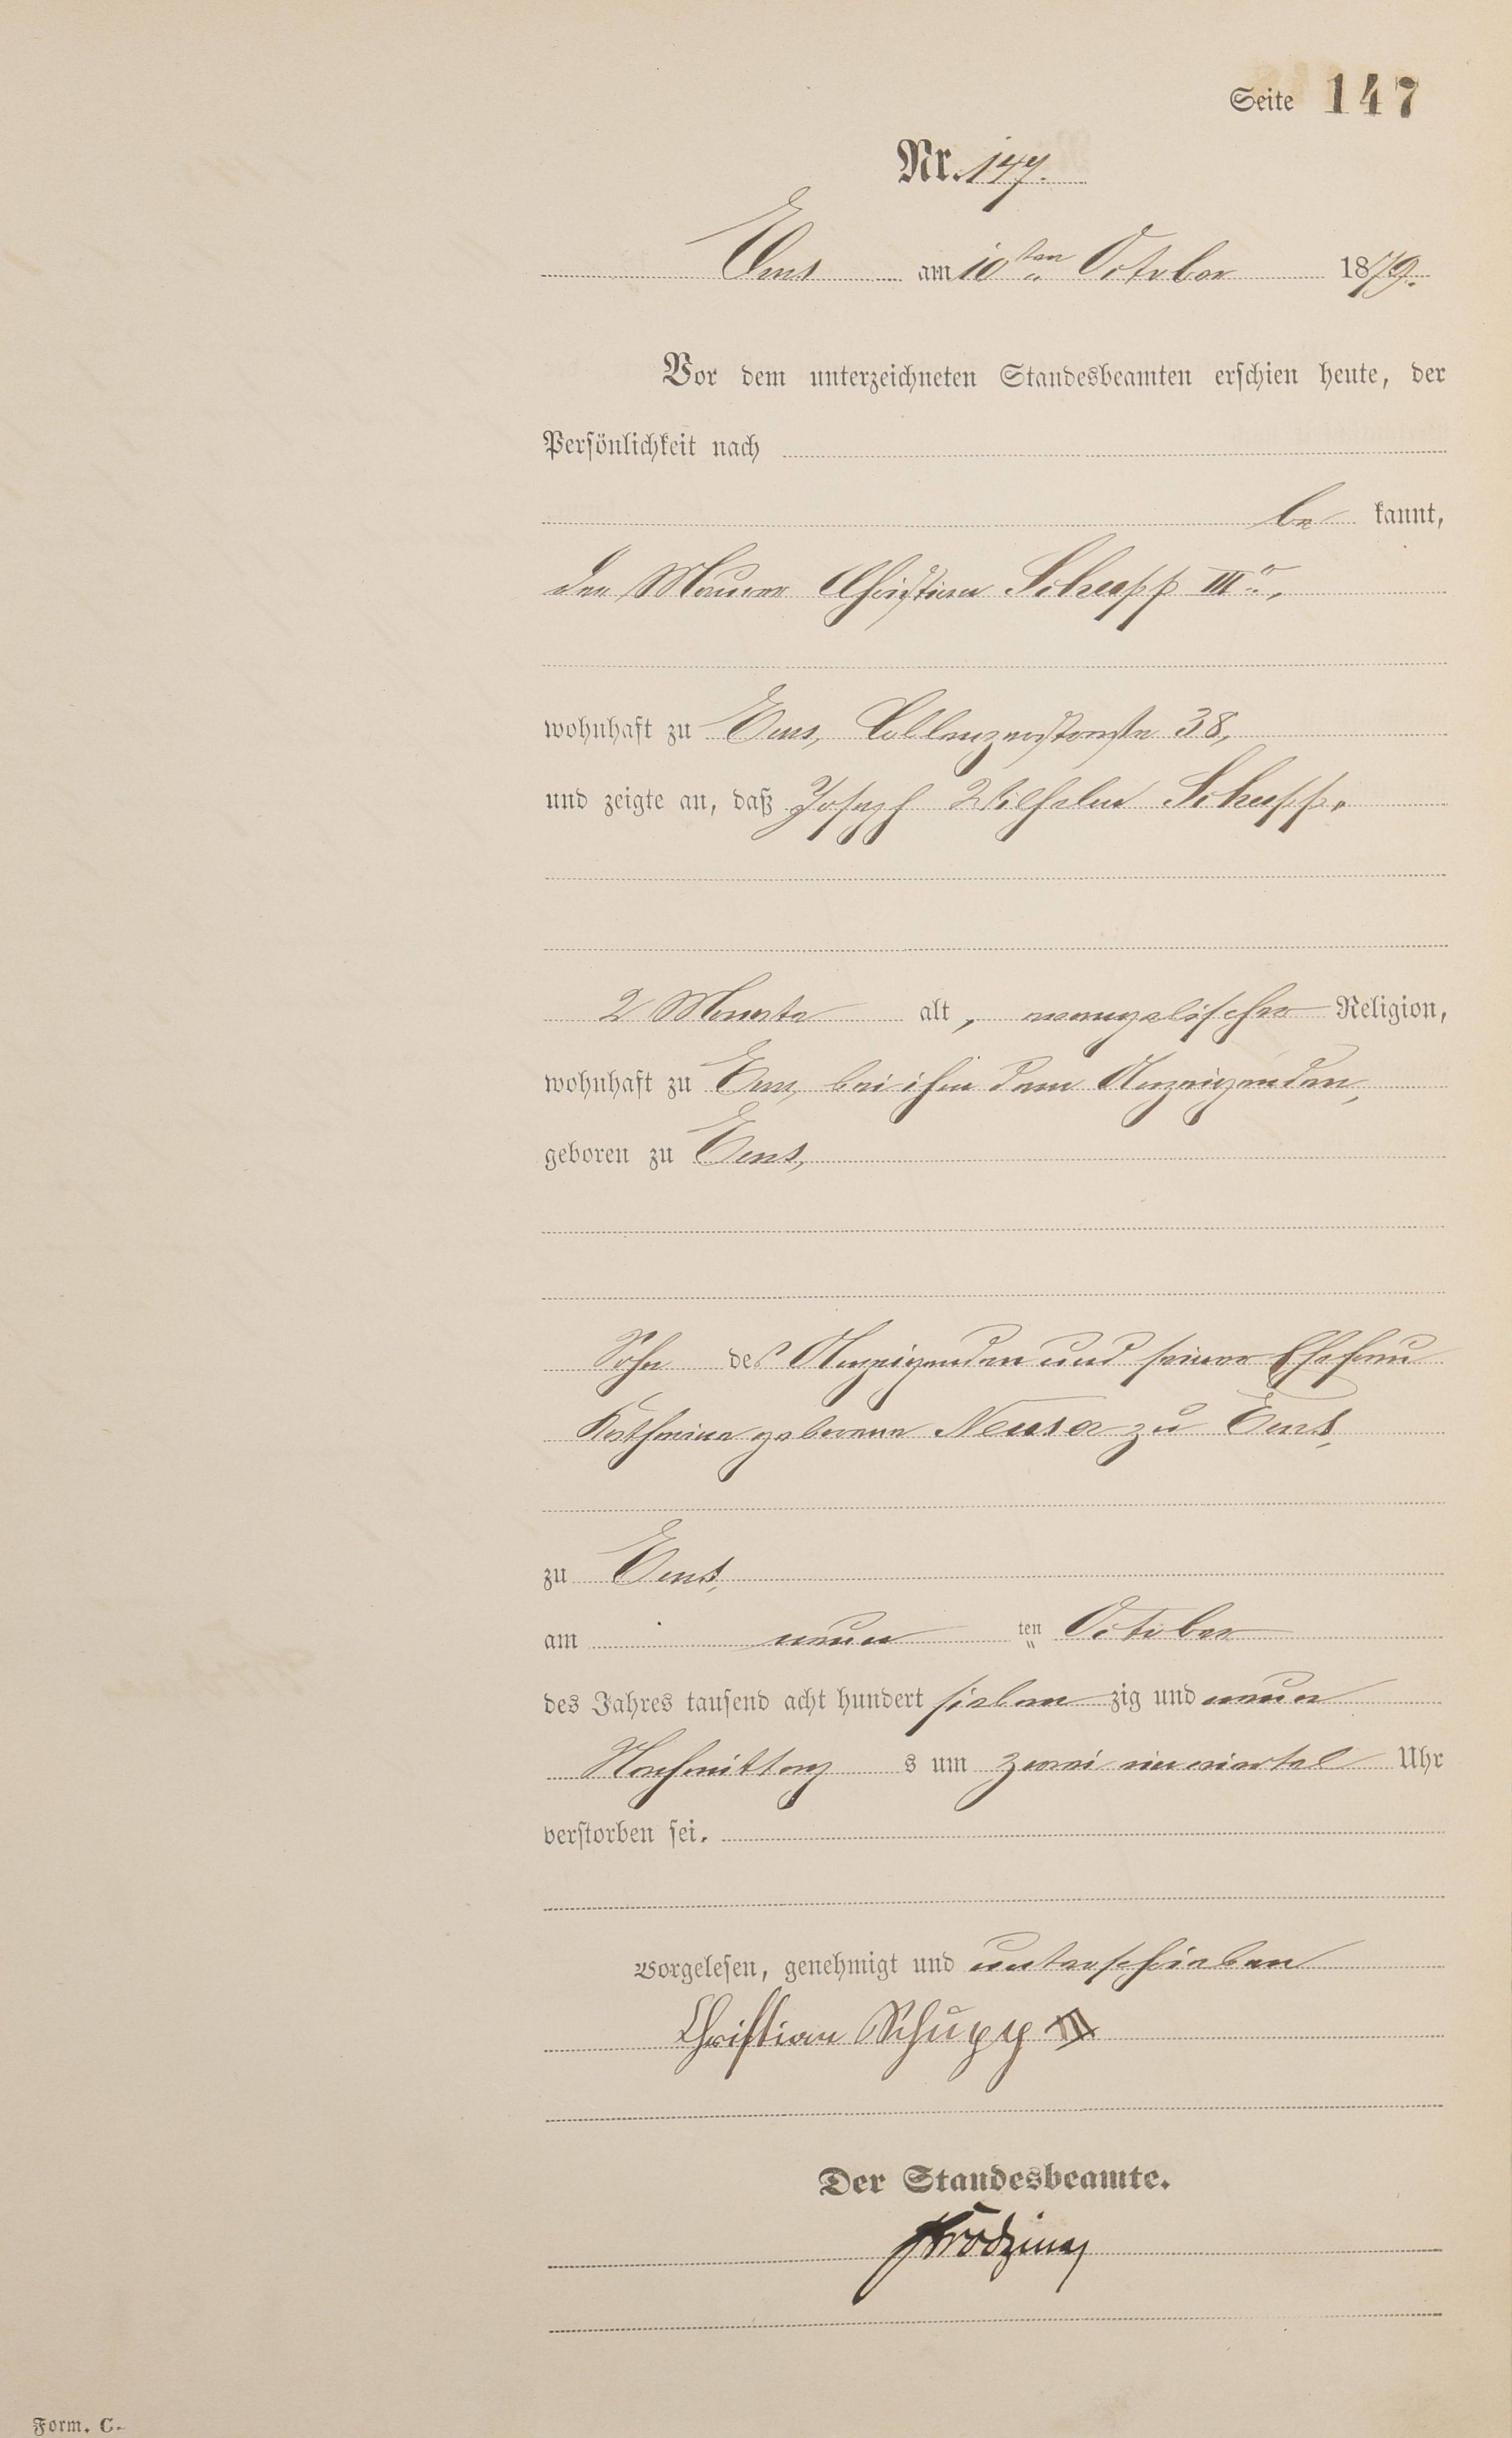 Seite 147
Nr. 147.
Ems am 10ten October 1879.
Vor dem unterzeichneten Standesbeamten erschien heute, der
Persönlichkeit nach
be kannt,
der Maurer Christian Schupp IIIr.,
wohnhaft zu Ems, Coblenzerstraße 38,
und zeigte an, daß Joseph Wilhelm Schupp,
2 Monate alt, evangelischer Religion,
wohnhaft zu Ems, bei ihm dem Anzeigenden,
geboren zu Ems,
Sohn des Anzeigenden und seiner Ehefrau
Katharina geborene Neuser zu Ems,
zu Ems,
am neun ten October
des Jahres tausend acht hundert sieben zig und neun
Nachmittag s um zwei einviertel Uhr
verstorben sei.
Vorgelesen, genehmigt und unterschrieben
Christian Schupp III
Der Standesbeamte.
Form. C.